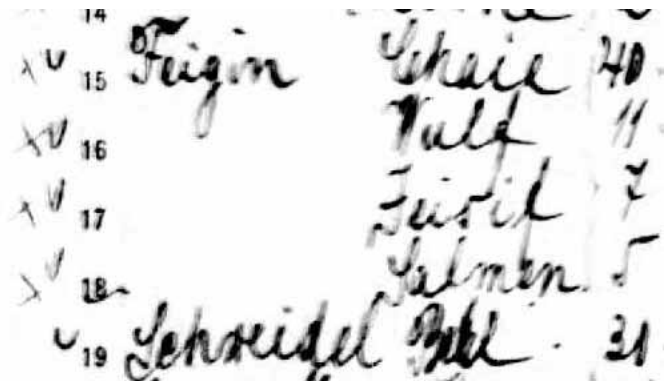 14
15 Feigin Chaie 40
16 Wulf 11
17 7
18 Salmen 5
19 Schneidel 31